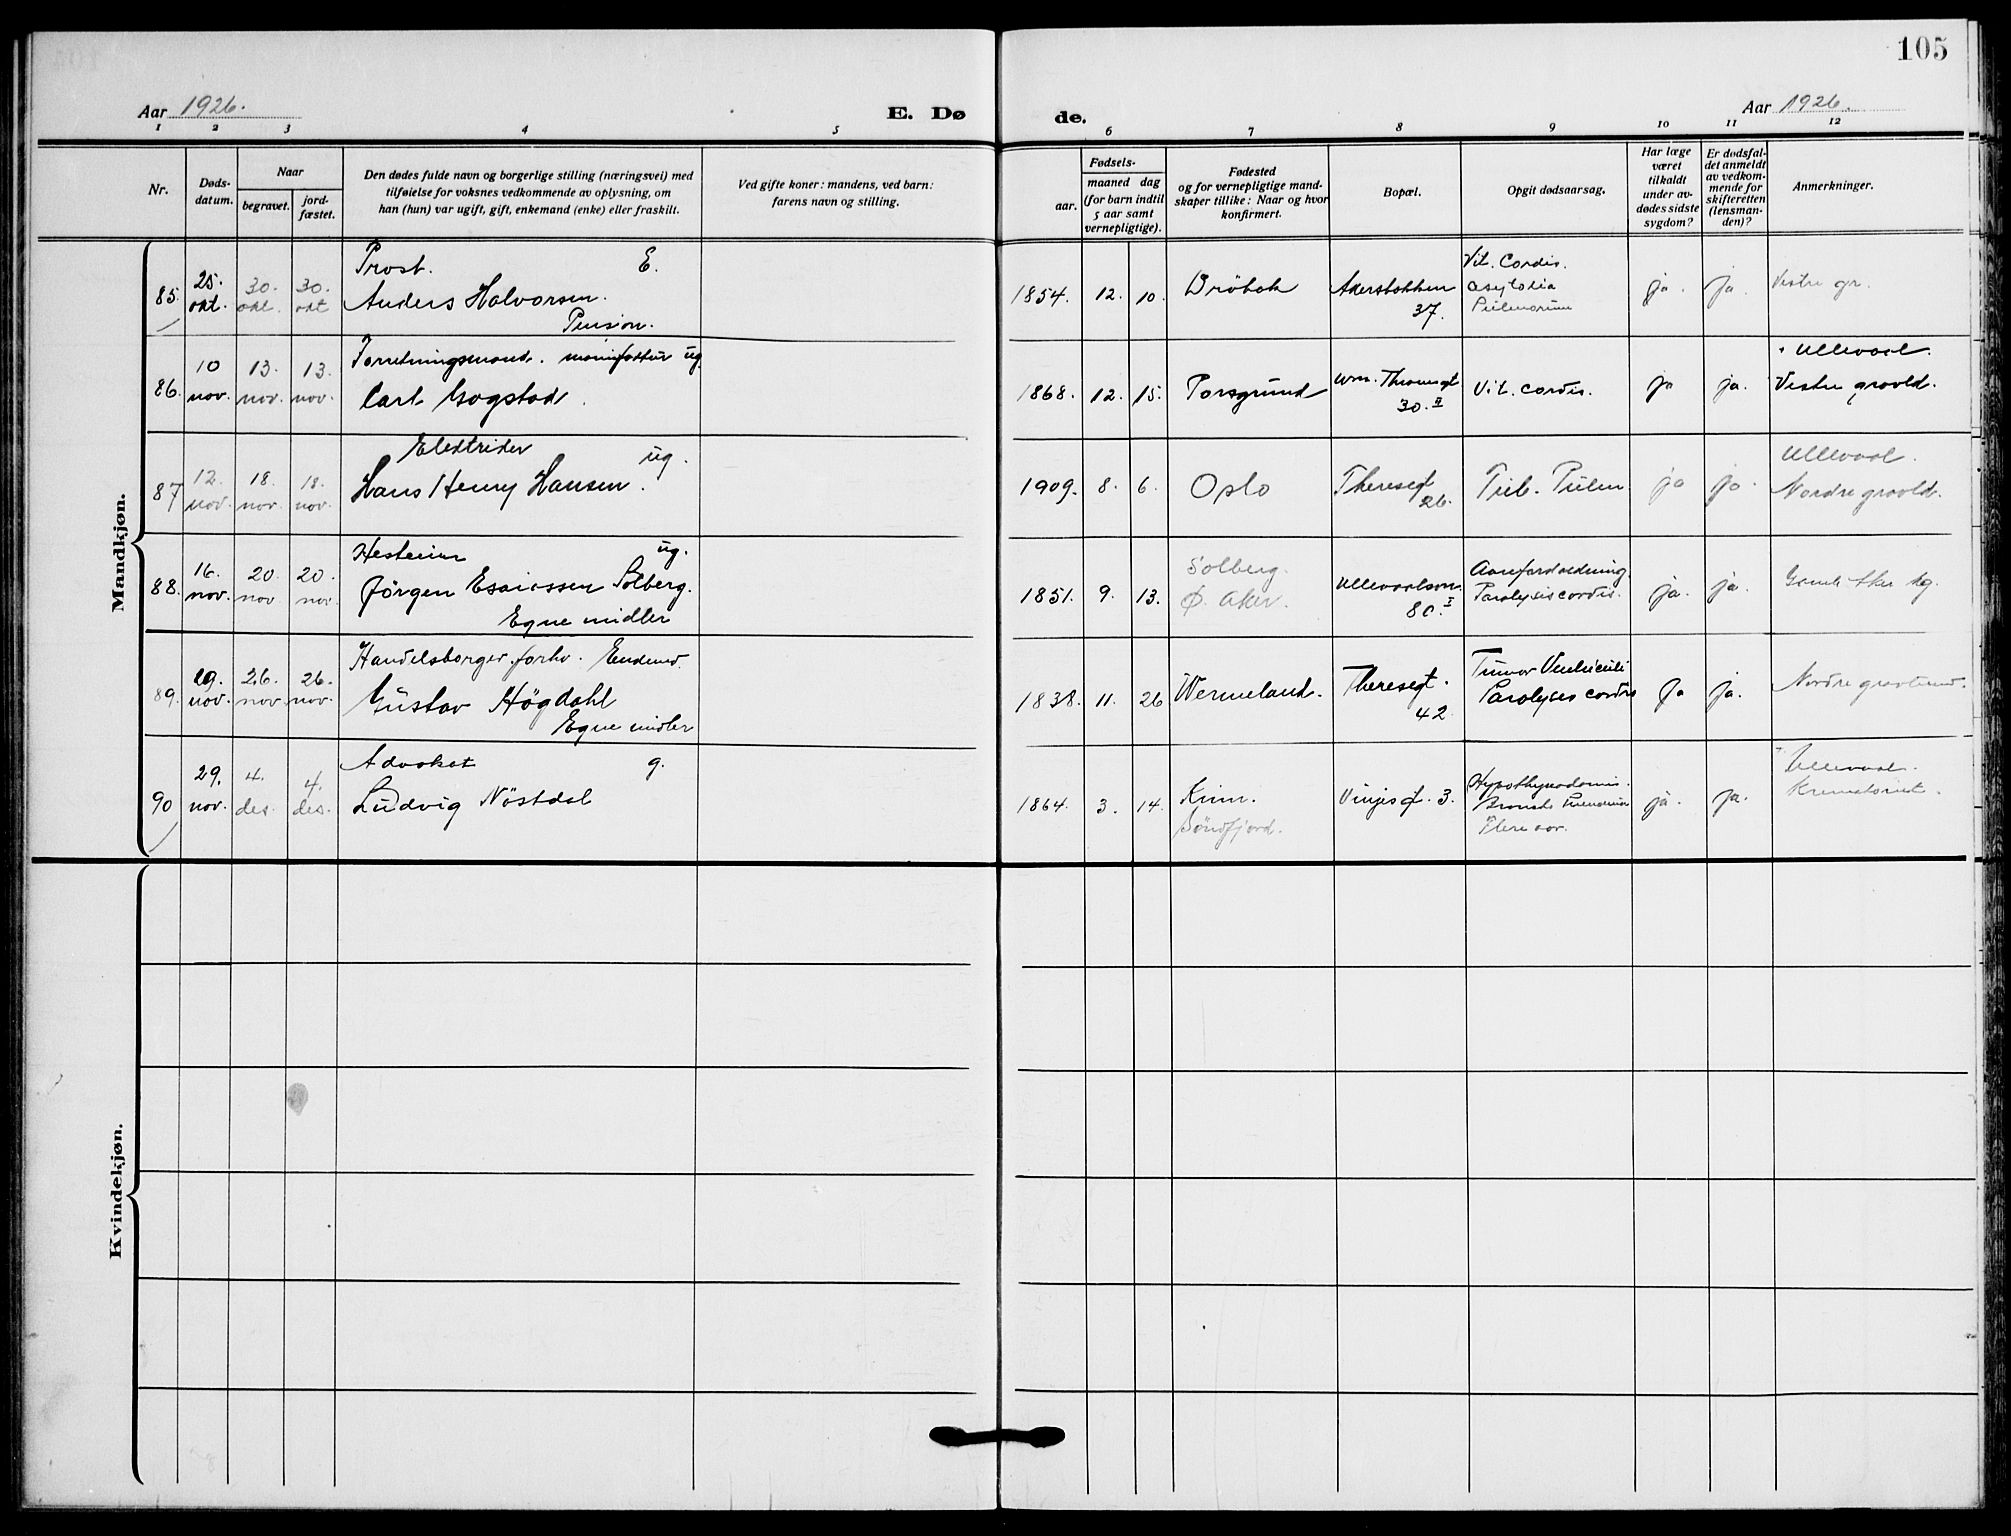 105
Aar 1926.
E. Dø
de.
Aar 1926.
1 2 3 4 5 6 7 8 9 10 11 12
Nr.
Døds-
datum.
Naar
begravet.
jord-
fæstet.
Den dødes fulde navn og borgerlige stilling (næringsvei) med
tilføielse for voksnes vedkommende av oplysning, om
han (hun) var ugift, gift, enkemand (enke) eller fraskilt.
Ved gifte koner: mandens, ved barn:
farens navn og stilling.
Fødsels-
aar.
maaned dag
(for barn indtil
5 aar samt
vernepligtige).
Fødested
og for vernepligtige mand-
skaper tillike: Naar og hvor
konfirmert.
Bopæl.
Opgit dødsaarsag.
Har læge
været
tilkaldt
under av-
dødes sidste
sygdom?
Er dødsfal-
det anmeldt
av vedkom-
mende for
skifteretten
(lensman-
den)?
Anmerkninger.
Mandkjøn.
85.
25.
okt.
30.
okt.
30.
okt
Prost. E.
Anders Halvorsen.
Pension.
1854. 12. 10.
Drøbak
Akersbakken
37.
Vit. Cordis.
ja. ja.
Vestre gr.
86.
10
nov.
13.
nov.
13.
nov.
Forretningsmand. manifaktur ug.
Carl Gogstad.
1868. 12. 15.
Porsgrund
Wm. Thranesgt
30. II
Vit. cordis.
ja ja.
Ullevaal.
Vestre gravld.
87
12.
nov.
18.
nov.
18.
nov.
Elektriker
ug.
Hans Henry Hansen.
1909. 8. 6.
Oslo
Theresegt
26.
Tub. Pulm
ja ja.
Ullevaal.
Nordre gravld.
88.
16.
nov.
20.
nov
20.
nov.
ug.
Jørgen Esaiassen Solberg.
Egne midler
1851. 9. 13.
Solberg.
Ø. Aker.
Ullevaalsvn.
80. I
Aareforkalkning.
Paralysis cordis.
ja. ja.
Gamle Aker kg.
89.
29.
nov.
26.
nov.
26.
nov.
Handelsborger. forhv. Enkemd.
Gustav Högdahl
Egne midler
1838. 11. 26
Wermeland.
Theresegt.
42.
Tumor Ventriculi
Paralyses cordis
ja ja.
Nordre gravlund.
90
29.
nov.
4.
des.
4.
des.
Advokat g.
Ludvig Nöstdal
1864. 3. 14.
Kinn.
Söndfjord.
Vinjesgt. 3.
flere aar.
ja. ja.
Ullevaal.
Krematoriet.
Kvindekjøn.